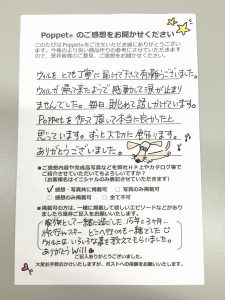 Poppet® のご感想をお聞かせください
このたびはPoppet®をご注文いただき誠にありがとうございます。
今後のより良い商品作りの参考にさせていただきますので、
是非皆様のご意見、ご感想をお聞かせください。
ウィルを とても丁寧に届けて下さって有難うございました。
ウィルが 帰って来たようで 感動して涙が止まり
ませんでした。毎日 眺めて 話しかけています。
Poppetを 作って頂いて本当に良かったと
思っています。ずっと大切に致します。
ありがとうございました。
■ご感想内容や完成品写真などを弊社HP上やカタログ等で
ご紹介させていただいてもよろしいですか？
（お客様名はイニシャルのみ表記させていただきます）
☑ 感想・写真共に掲載可 □ 写真のみ掲載可
□ 感想のみ掲載可 □ 全て不可
■掲載可の方は、一緒に掲載して欲しいエピソードなどがあり
ましたら是非ご記入をお願いいたします。
家族として一緒に過ごした 15年と3ヶ月…
旅行やスキー どこへ行くのも一緒でした
ウィルには いろいろな事を教えてもらいました。
ありがとう Will
ご記入ありがとうございました。
大変お手数おかけいたしますが、ポストへの投函をお願いいたします。